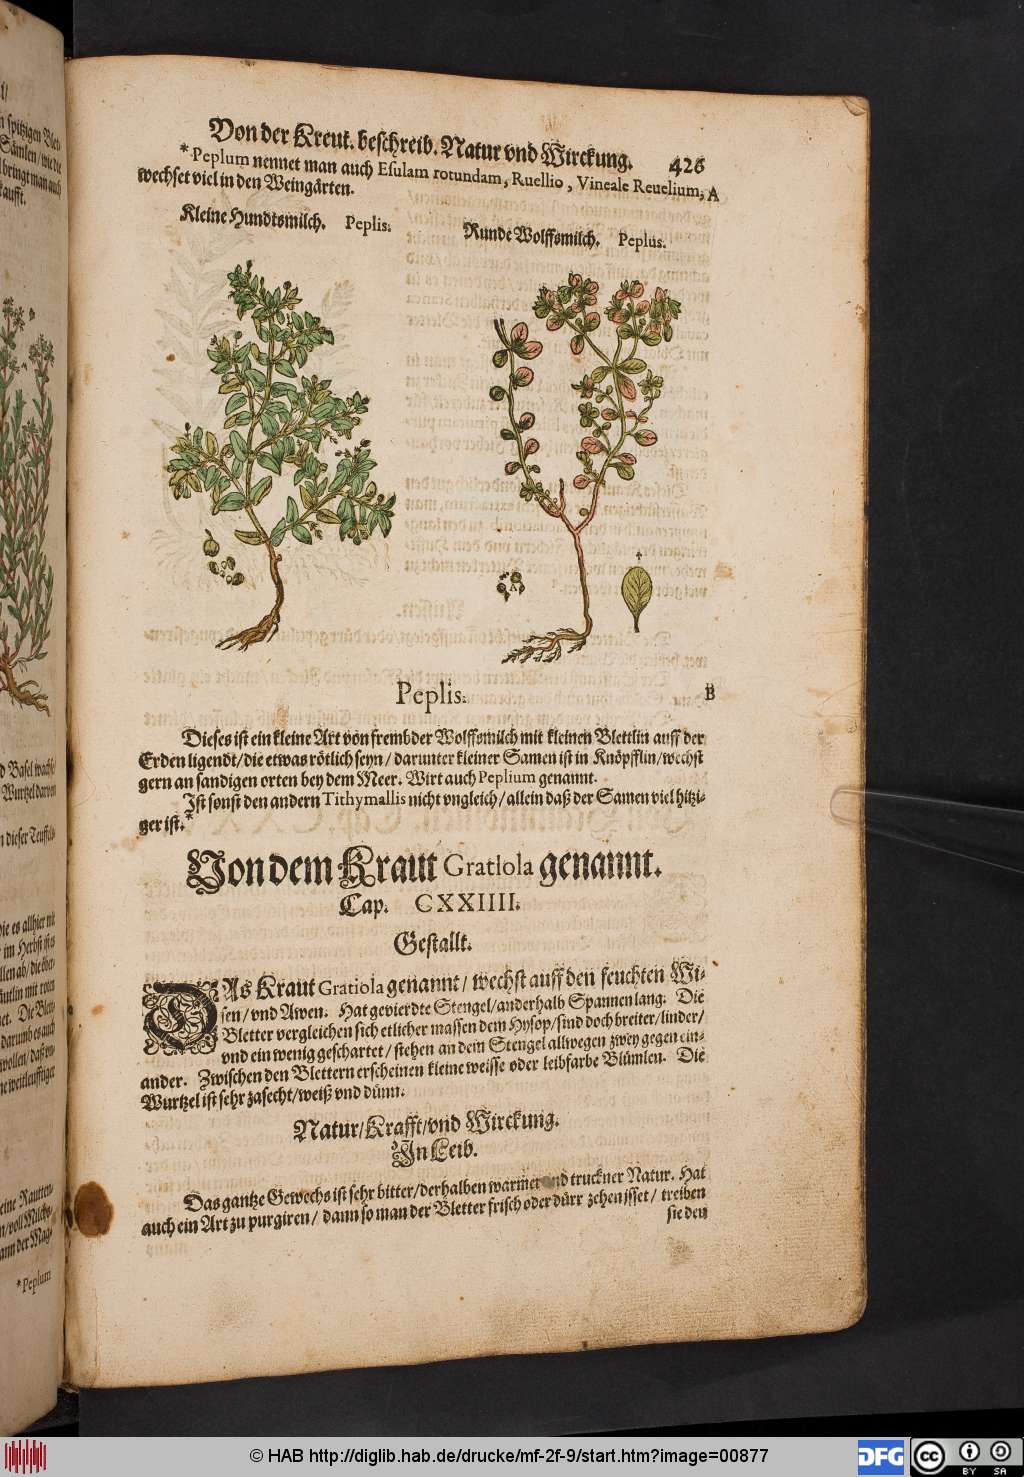 Von der Kreut. beschreib. Natur vnd Wirckung. 426
*Peplum nennet man auch Esulam rotundam, Ruellio, Vineale Reuelium, A
wechset viel in den Weingärten.
Kleine Hundtsmilch. Peplis.
Runde Wolffsmilch. Peplus.
A
Peplis.
B
Dieses ist ein kleine Art von frembder Wolffsmilch mit kleinen Blettlin auff der
Erden ligendt/die etwas rötlich seyn/darunter kleiner Samen ist in Knöpfflin/wechst
gern an sandigen orten bey dem Meer. Wirt auch Peplium genannt.
Ist sonst den andern Tithymallis nicht vngleich/allein daß der Samen viel hitzi-
ger ist.*
Von dem Kraut Gratiola genannt.
Cap. CXXIIII.
Gestallt.
DAs Kraut Gratiola genannt/wechst auff den feuchten Wi-
sen/vnd Awen. Hat gevierdte Stengel/anderhalb Spannen lang. Die
Bletter vergleichen sich etlicher massen dem Hysop/sind doch breiter/linder/
vnd ein wenig geschartet/stehen an dem Stengel allwegen zwey gegen ein-
ander. Zwischen den Blettern erscheinen kleine weisse oder leibfarbe Blümlen. Die
Wurtzel ist sehr zasecht/weiß vnd dünn.
Natur/Krafft/vnd Wirckung.
In Leib.
Das gantze Gewechs ist sehr bitter/derhalben warmer vnd truckner Natur. Hat
auch ein Art zu purgiren/dann so man der Bletter frisch oder dürr zehen jsset/treiben
sie den
*Peplum
© HAB http://diglib.hab.de/drucke/mf-2f-9/start.htm?image=00877
DFG
cc BY SA